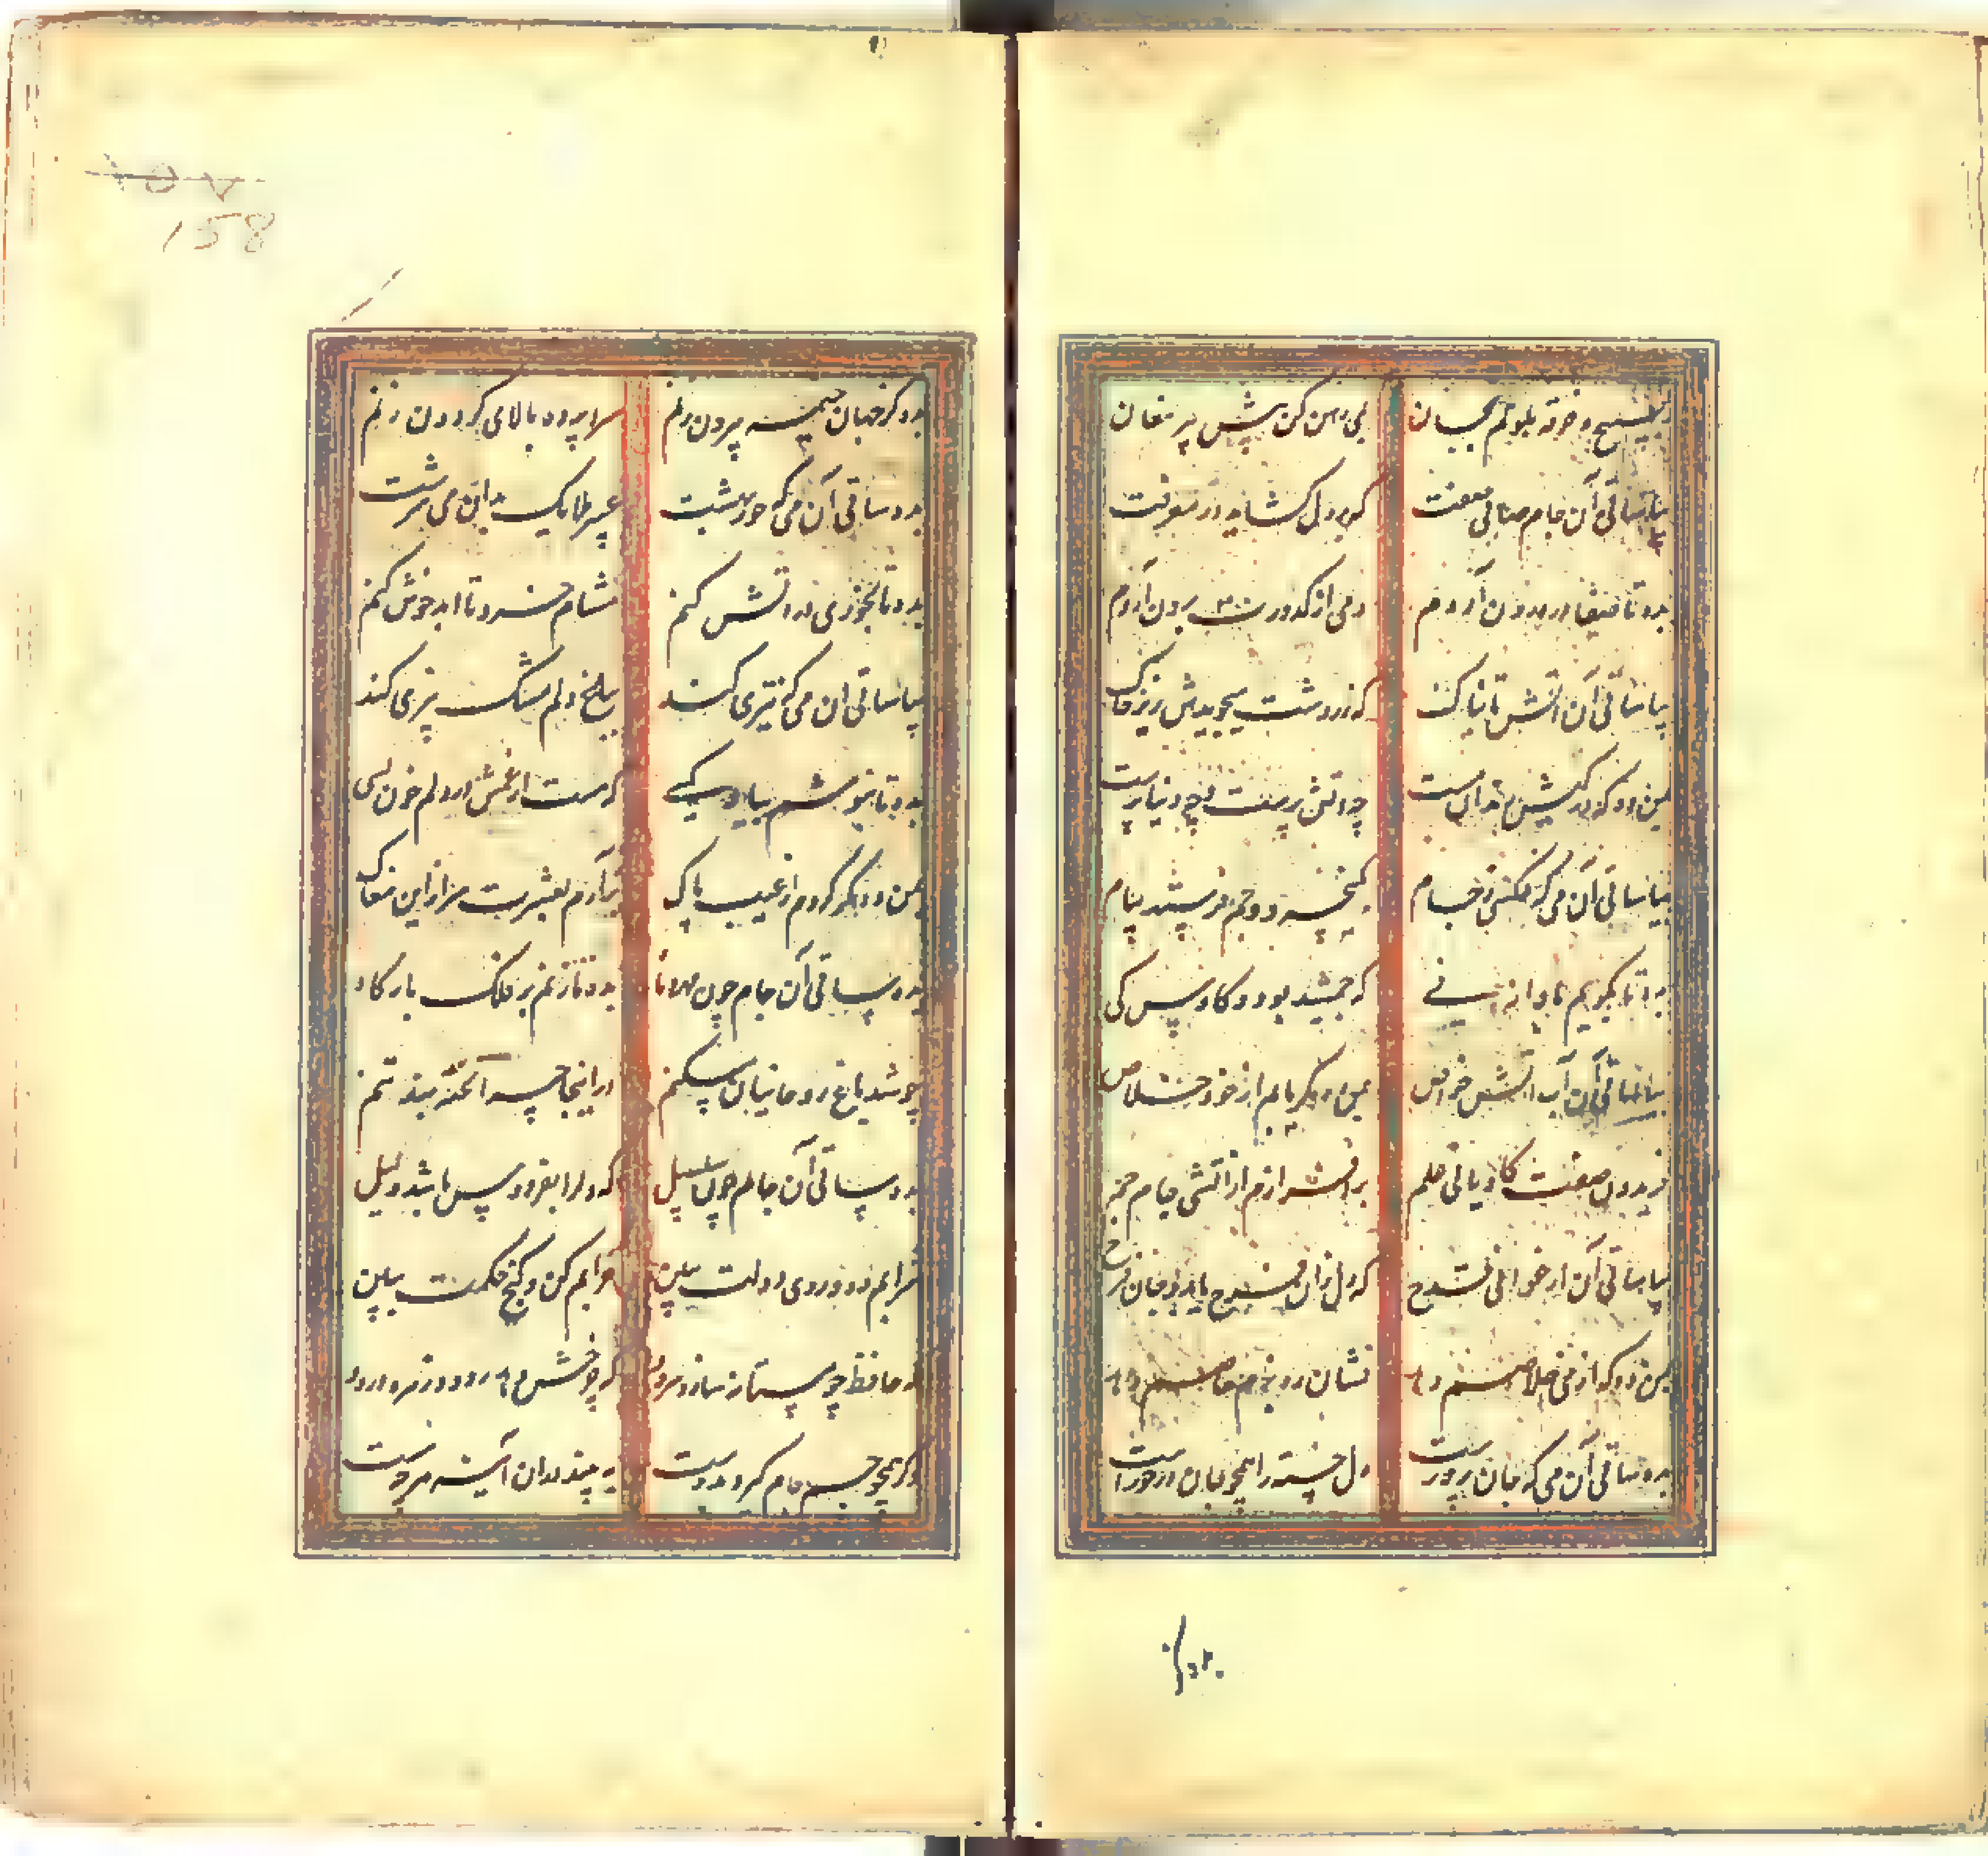 بیا ساقی آن جام صافی صفت
که بر دل گشاید در معرفت
بده تا صفا در درون آردم
دمی از کدورت برون آردم
بیا ساقی آن آتش تابناک
که زردشت میجویدش زیر خاک
بمن ده که در کیش رندان مست
چه آتش پرست و چه دنیا پرست
بیا ساقی آن می که عکسش ز جام
بکیخسرو و جم فرستد پیام
بده تا بگویم بآواز نی
که جمشید بود و کاوس کی
بیا ساقی آن آب آتش خواص
بمن ده که یابم از خود خلاص
فریدون صفت کاویانی علم
برافرازم از آتشی جام جم
بیا ساقی آن ارغوانی قدح
که دل زان فرح یابد و جان فرح
بمن ده که از غم خلاصم دهد
نشان ره بزم خاصم دهد
بده ساقی آن می که جان پرورست
دل خسته را همچو جان در خورست
بده کز جهان خیمه بیرون زنم
سراپرده بالای گردون زنم
بده ساقی آن می که حور بهشت
عبیر ملایک بدان می سرشت
بده تا بخوری در آتش کنم
مشام خرد تا ابد خوش کنم
بیا ساقی آن می که تیزی کند
بباغ دلم مشک بیزی کند
بده تا بنوشم بیاد کسی
که هست از غمش در دلم خون بسی
بمن ده مگر گردم از عیب پاک
برآرم بعشرت سر از این مغاک
بده ساقی آن جام چون مهر و ماه
بده تا زنم بر فلک بارگاه
چو شد باغ روحانیان مسکنم
در اینجا چرا تخته بند تنم
بده ساقی آن جام چون سلسبیل
که دل را بفردوس باشد دلیل
شرابم ده و روی دولت ببین
خرابم کن و گنج حکمت ببین
که حافظ چو مستانه سازد سرود
ز چرخش دهد رود زهره درود
وگر همچو جم جام گیرد بدست
ببیند در آن آینه هر چه هست
158